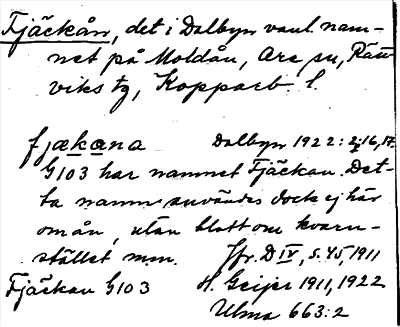 Fjäckån, det i Dalbyn vanl. nam-
net på Moldån, Ore sn, Rätt-
viks tg, Kopparb. l.
fjækana Dalbyn 1922:2; 16, 17.
G103 har namnet Fjäckan. Det-
ta namn användes dock ej här
om ån, utan blott om kvarn-
stället m.m. Jfr. D IV, s. 45, 1911
Fjäckan G103 H. Geijer 1911, 1922
Ulma 663:2